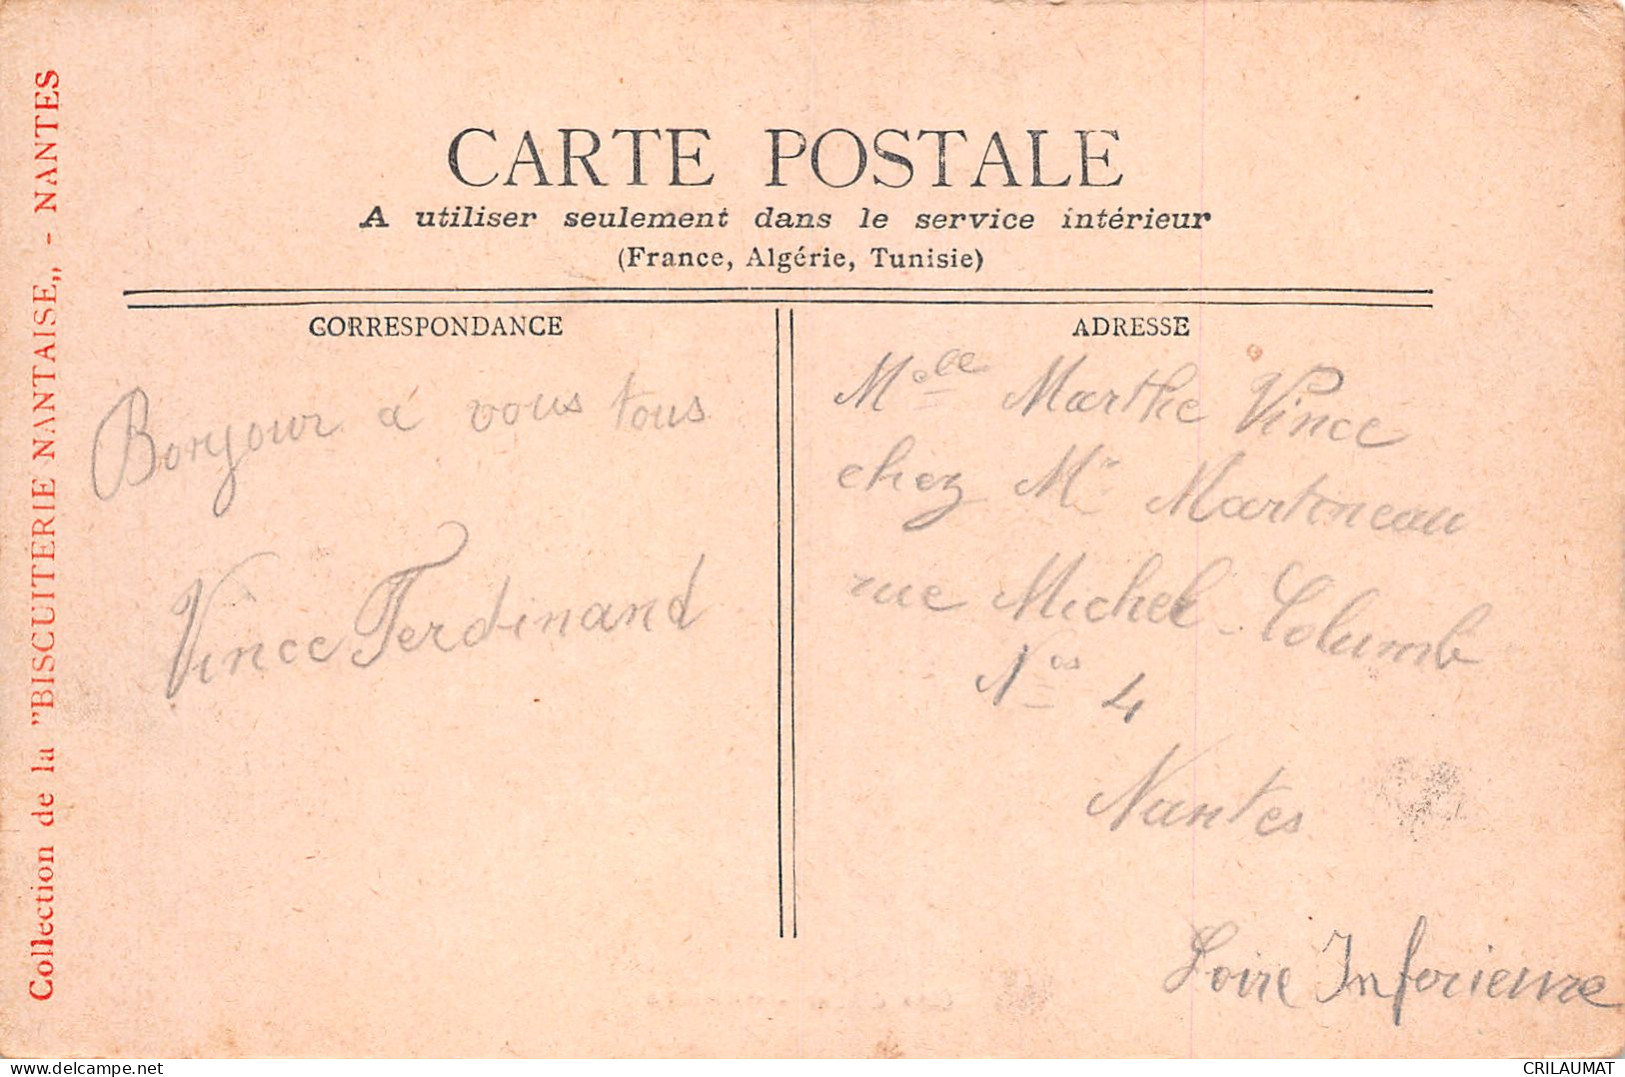 Collection de la "BISCUITERIE NANTAISE„ - NANTES
CARTE POSTALE
A utiliser seulement dans le service intérieur
(France, Algérie, Tunisie)
CORRESPONDANCE
Bonjour a vous tous
Vince Ferdinand
ADRESSE
Melle Marthe Vince
chez Mr Martineau
rue Michel-Columb
Nos 4
Nantes
Loire Inferieure
delcampe.net
CRILAUMAT